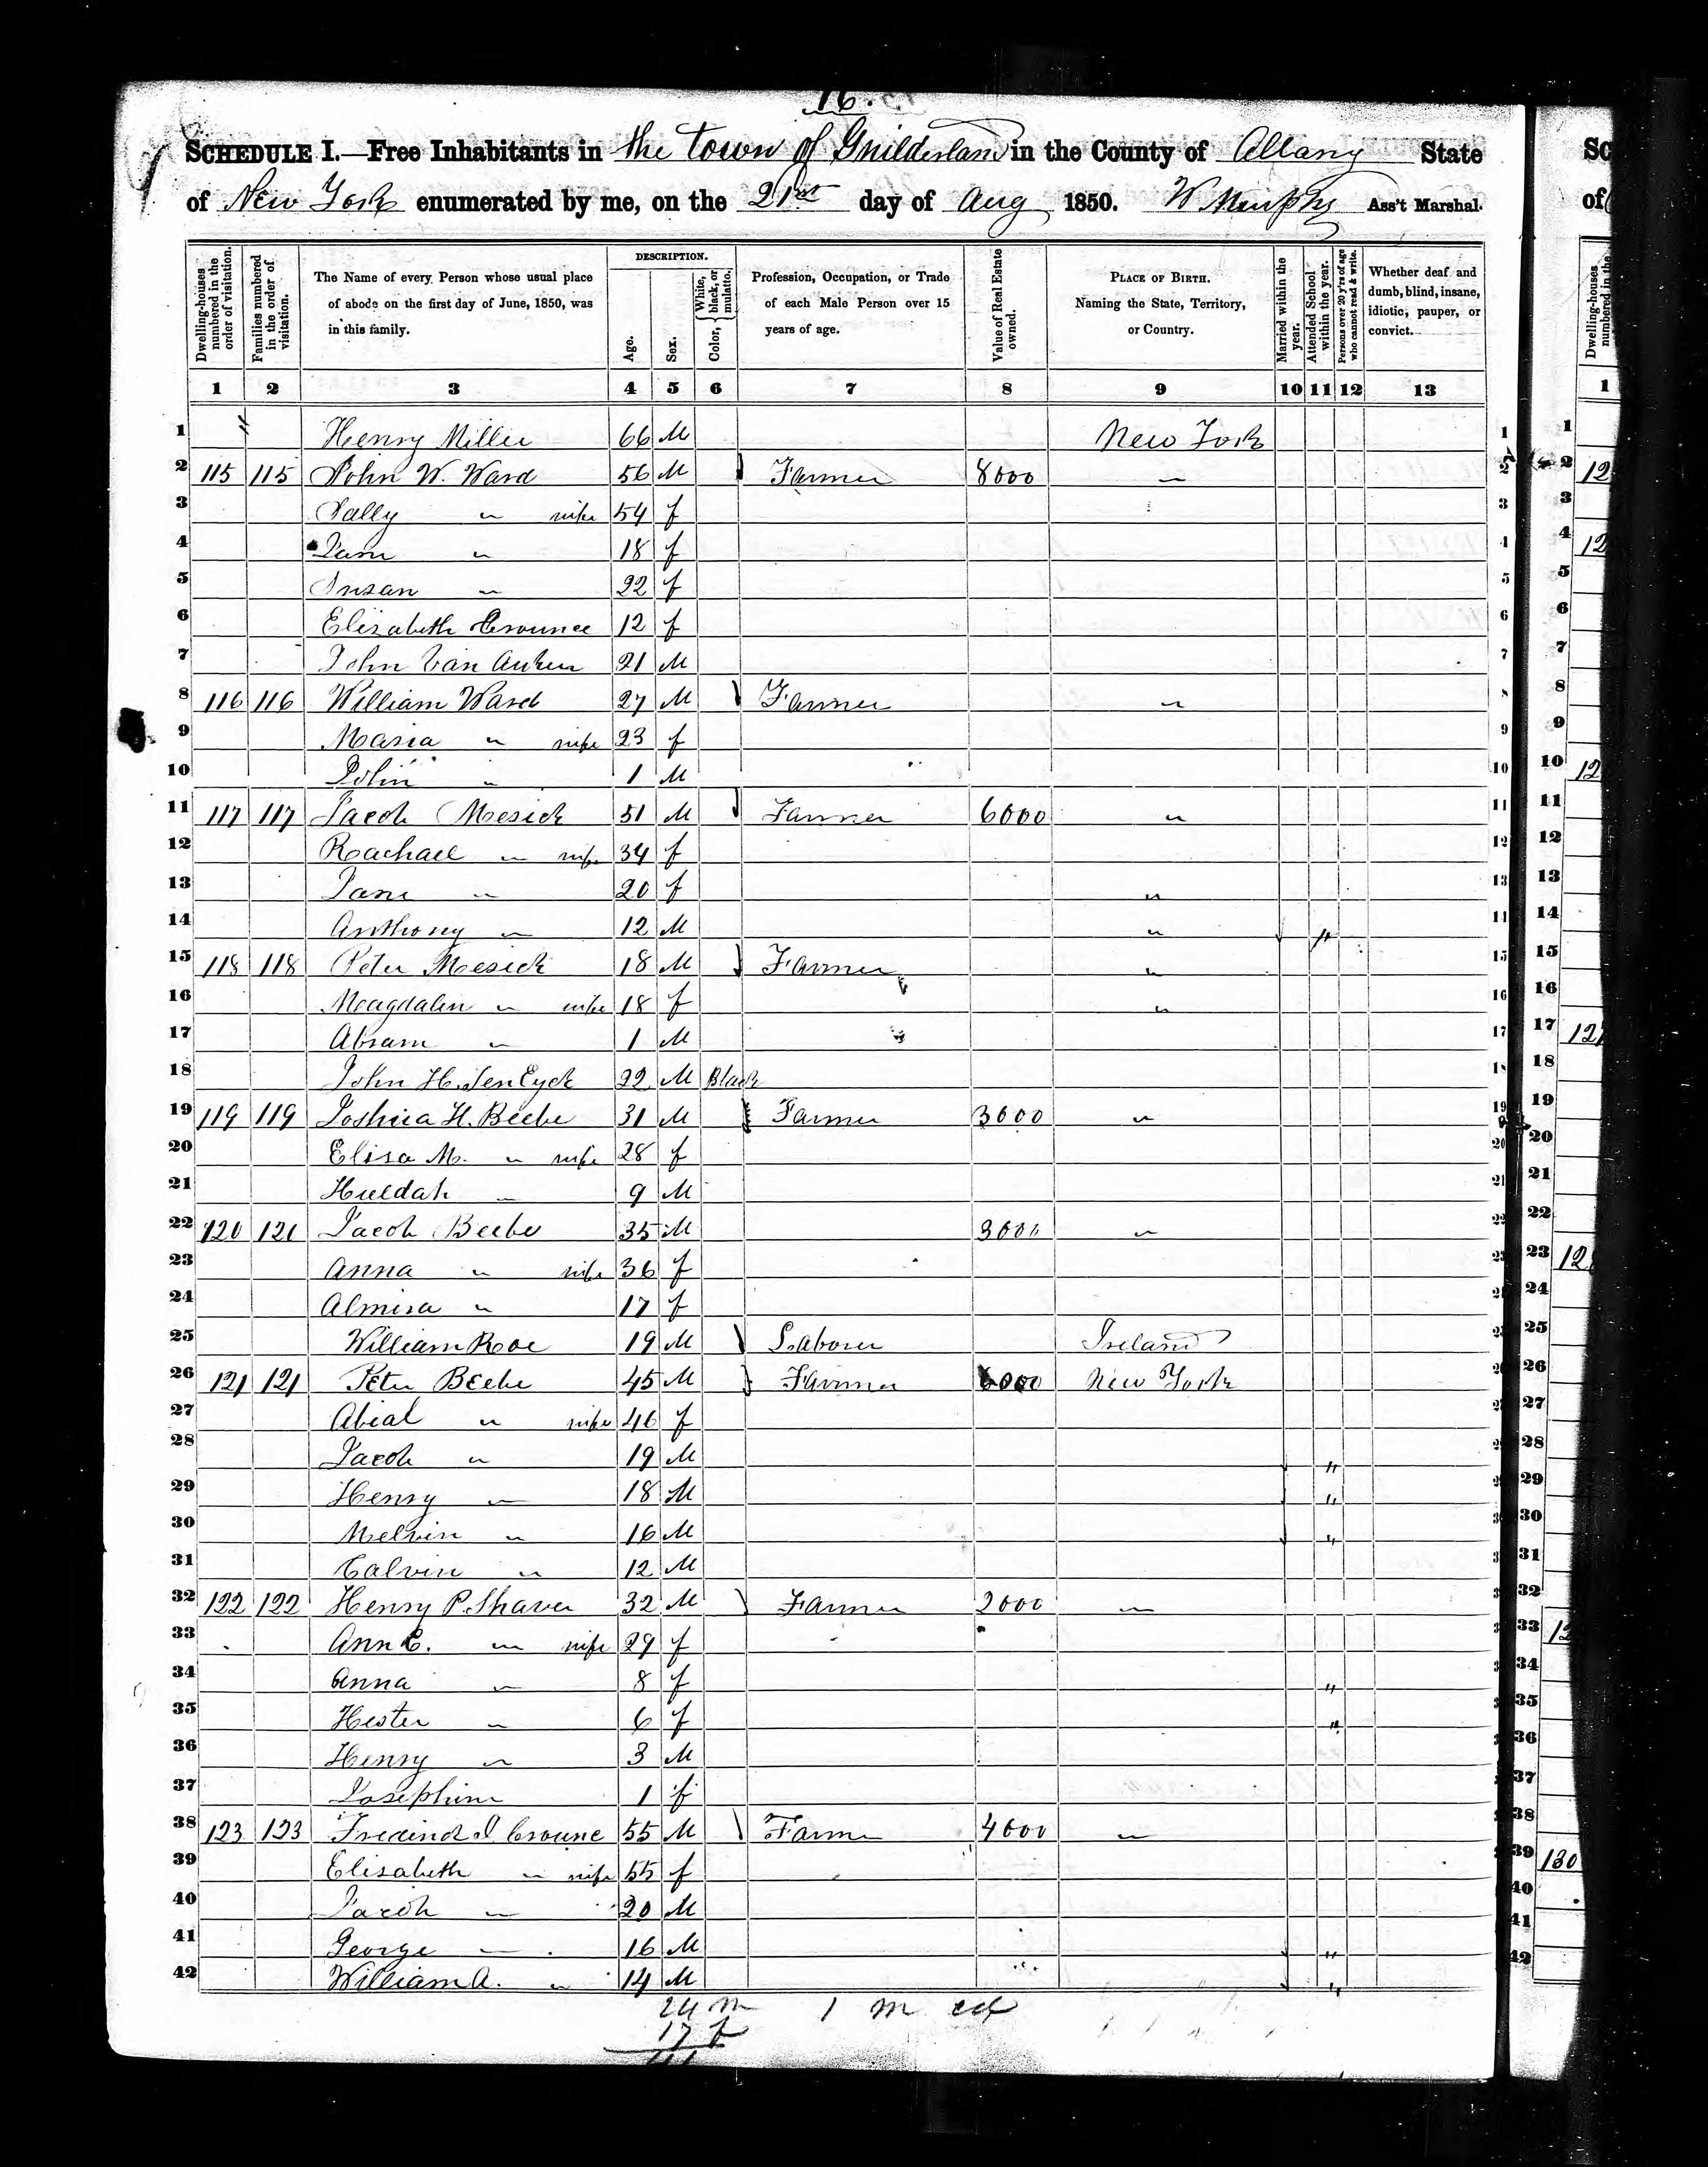 16.
SCHEDULE I.—Free Inhabitants in the town of Guilderland in the County of Albany State
of New York enumerated by me, on the 21st day of Aug 1850. W Murphy Ass't Marshal.
Dwelling-houses numbered in the order of visitation.
Families numbered in the order of visitation.
The Name of every Person whose usual place of abode on the first day of June, 1850, was in this family.
DESCRIPTION.
Age.
Sex.
Color, { White, black, or mulatto.
Profession, Occupation, or Trade of each Male Person over 15 years of age.
Value of Real Estate owned.
PLACE OF BIRTH. Naming the State, Territory, or Country.
Married within the year.
Attended School within the year.
Persons over 20 y'rs of age who cannot read & write.
Whether deaf and dumb, blind, insane, idiotic, pauper, or convict.
1 2 3 4 5 6 7 8 9 10 11 12 13
1 " Henry Miller 66 M New York 1
2 115 115 John W. Ward 56 M Farmer 8000 " 2
3 Sally " wife 54 f 3
4 Jane " 18 f 4
5 Susan " 22 f 5
6 Elizabeth Crounce 12 f 6
7 John Van Auken 21 M 7
8 116 116 William Ward 27 M Farmer " 8
9 Maria " wife 23 f 9
10 John " 1 M 10
11 117 117 Jacob Mesick 51 M Farmer 6000 " 11
12 Rachael " wife 34 f 12
13 Jane " 20 f " 13
14 Anthony " 12 M " " 14
15 118 118 Peter Mesick 18 M Farmer " 15
16 Magdalen " wife 18 f " 16
17 Abram " 1 M 17
18 John H. TenEyck 22 M Black 18
19 119 119 Joshua H. Beebe 31 M Farmer 3000 " 19
20 Elisa M. " wife 28 f 20
21 Huldah " 9 M 21
22 120 120 Jacob Beebe 35 M 3000 " 22
23 Anna " wife 36 f 23
24 Almira " 17 f
25 William Roe 19 M Laborer Ireland
26 121 121 Peter Beebe 45 M Farmer 6000 New York
27 Abial " wife 46 f
28 Jacob " 19 M "
29 Henry " 18 M "
30 Melvin " 16 M "
31 Calvin " 12 M
32 122 122 Henry P. Shaver 32 M Farmer 2000 "
33 Ann C. " wife 29 f
34 Anna " 8 f "
35 Hester " 6 f "
36 Henry " 3 M
37 Josephine 1 f
38 123 123 Frederick J Crounc 55 M Farmer 4000 "
39 Elisabeth " wife 55 f
40 Jacob " 20 M
41 George " 16 M "
42 William A. " 14 M "
24 m 1 m cd
17 f
41